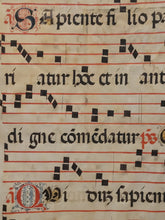 a Sapiente filio pa
ri atur hoc et in an
digne cōmēdatur ps
a Qui diuz sapien